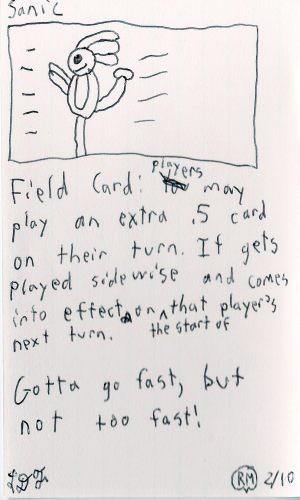 Sanic
Field Card: players may
play an extra .5 card
on their turn. It gets
played sidewise and comes
into effect on the start of that player's
next turn.
Gotta go fast, but
not too fast!
RM 2/10